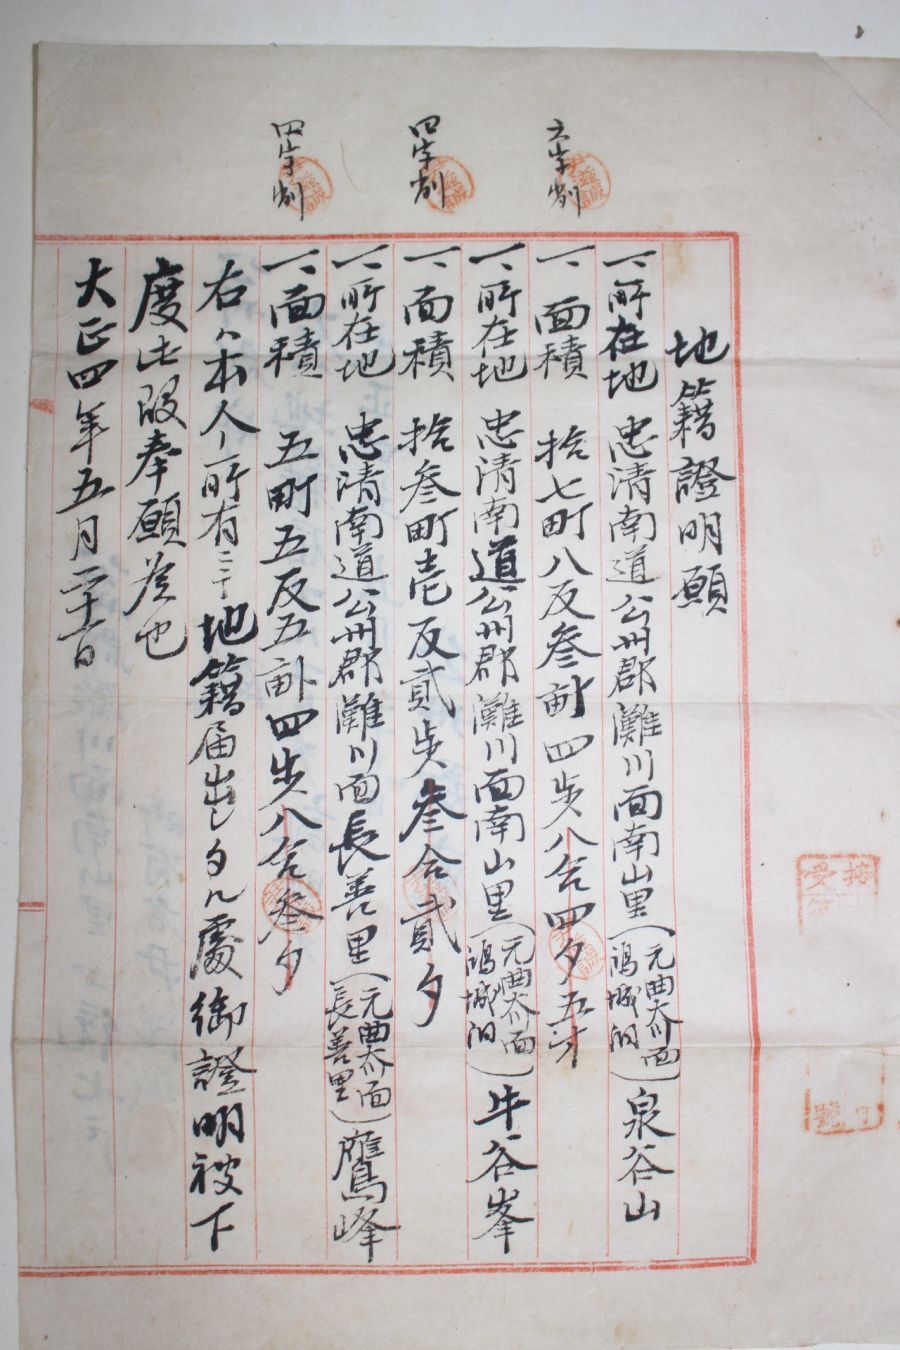 地籍證明願
一、所在地 忠清南道公州郡灘川面南山里(元曲火川面鴻城洞)泉谷山
一、面積 拾七町八反叁畝四步八合四夕五才
一、所在地 忠清南道公州郡灘川面南山里(元曲火川面鴻城洞)牛谷峯
一、面積 拾叁町壱反貳步叁合貳夕
一、所在地 忠清南道公州郡灘川面長善里(元曲火川面長善里)鷹峰
一、面積 五町五反五畝四步八合叁夕
右ハ本人ノ所有ニシテ地籍届出シタル處御證明被下
度此段奉願候也
大正四年五月二十一日
六字削
四字削
四字削